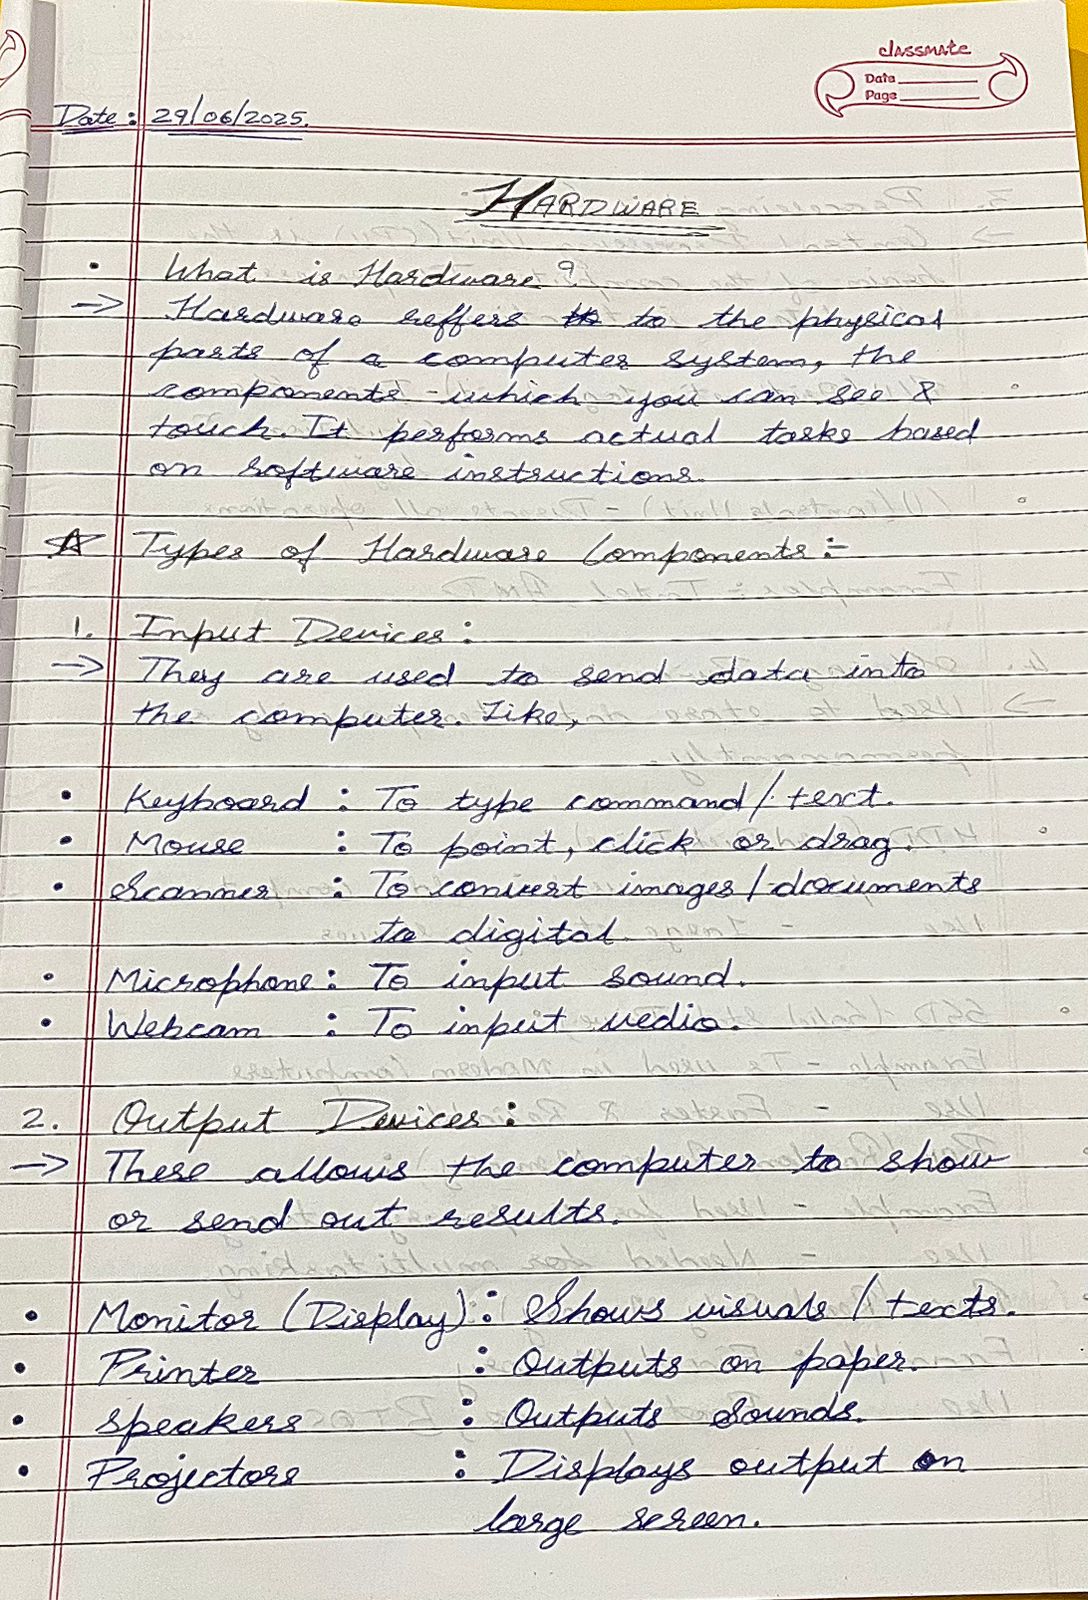 classmate
Date
Page
Date: 29/06/2025.
HARDWARE
• What is Hardware?
→ Hardware reffers to the physical
parts of a computer system, the
components which you can see &
touch. It performs actual tasks based
on software instructions.
☆ Types of Hardware Components :-
1. Input Devices :
→ They are used to send data into
the computer. Like,
• Keyboard : To type command/text.
• Mouse : To point, click or drag.
• Scanner : To convert images/documents
to digital.
• Microphone : To input sound.
• Webcam : To input vedio.
2. Output Devices :
→ These allows the computer to show
or send out results.
• Monitor (Display) : Shows visuals / texts.
• Printer : Outputs on paper.
• Speakers : Outputs Sounds.
• Projectors : Displays output on
large screen.